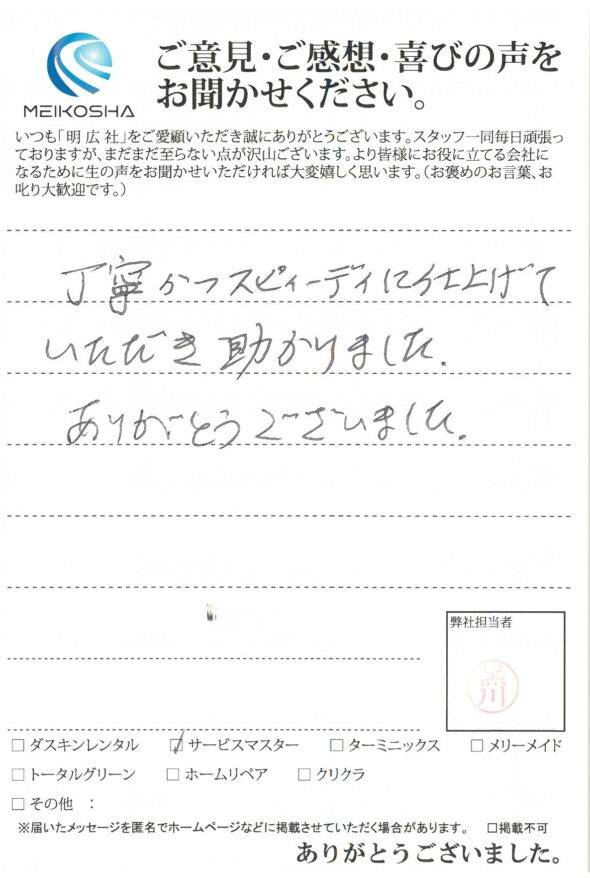 MEIKOSHA
ご意見・ご感想・喜びの声を
お聞かせください。
いつも「明広社」をご愛顧いただき誠にありがとうございます。スタッフ一同毎日頑張っ
ておりますが、まだまだ至らない点が沢山ございます。より皆様にお役に立てる会社に
なるために生の声をお聞かせいただければ大変嬉しく思います。（お褒めのお言葉、お
叱り大歓迎です。）
丁寧かつスピィーディに仕上げて
いただき助かりました.
ありがとうございました.
弊社担当者
黒川
□ ダスキンレンタル ☑ サービスマスター □ ターミニックス □ メリーメイド
□ トータルグリーン □ ホームリペア □ クリクラ
□ その他 ：
※届いたメッセージを匿名でホームページなどに掲載させていただく場合があります。 □掲載不可
ありがとうございました。